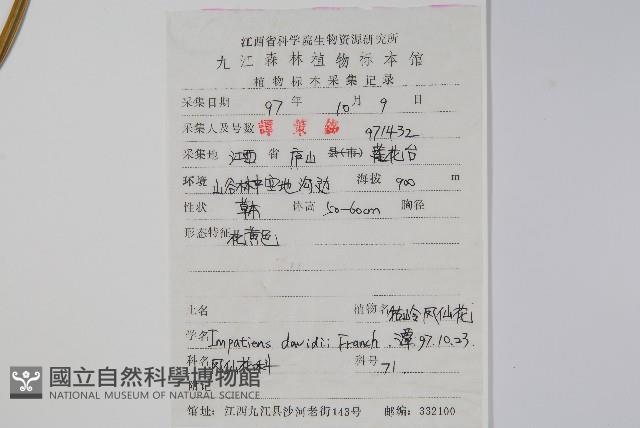 江西省科学院生物资源研究所
九江森林植物标本馆
植物标本采集记录
采集日期 97 年 10 月 9 日
采集人及号数 譚策銘 971432
采集地 江西 省 庐山 县(市) 莲花台
环境 山谷林中空地 河边 海拔 900 m
性状 草本 体高 50-60cm 胸径
形态特征 花黄色
土名 植物名 牯岭凤仙花
学名 Impatiens davidii Franch. 潭 97.10.23.
科名 凤仙花科 科号 71
附记
國立自然科學博物館
NATIONAL MUSEUM OF NATURAL SCIENCE
馆址: 江西九江县沙河老街143号 邮编: 332100